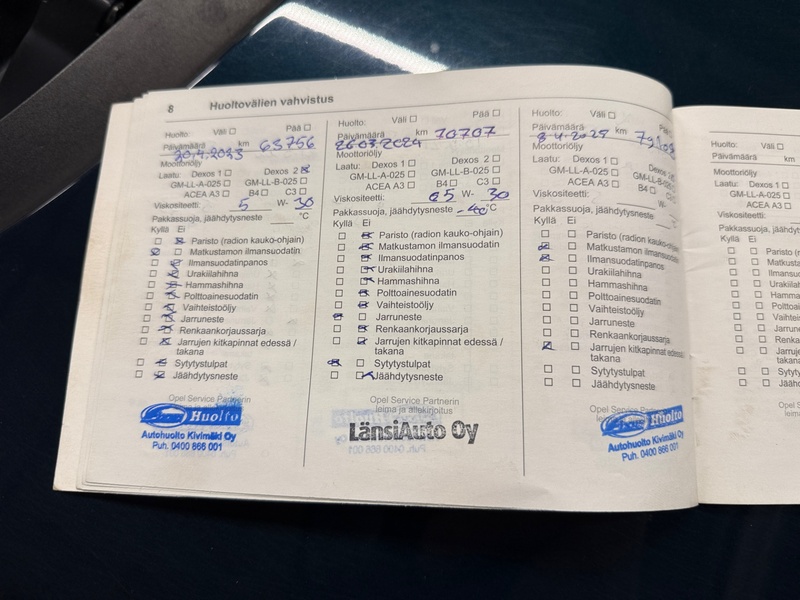 8 Huoltovälien vahvistus
Huolto: Väli Pää
Päivämäärä km 63756
20.4.2023
Moottoriöljy
Laatu: Dexos 1 Dexos 2
GM-LL-A-025 GM-LL-B-025
ACEA A3 B4 C3
Viskositeetti: 5 W- 30
Pakkassuoja, jäähdytysneste °C
Kyllä Ei
Paristo (radion kauko-ohjain)
Matkustamon ilmansuodatin
Ilmansuodatinpanos
Urakiilahihna
Hammashihna
Polttoainesuodatin
Vaihteistoöljy
Jarruneste
Renkaankorjaussarja
Jarrujen kitkapinnat edessä /
takana
Sytytystulpat
Jäähdytysneste
Opel Service Partnerin
Huolto
Autohuolto Kivimäki Oy
Puh. 0400 866 001
Huolto: Väli Pää
Päivämäärä km 70707
26.03.2024
Moottoriöljy
Laatu: Dexos 1 Dexos 2
GM-LL-A-025 GM-LL-B-025
ACEA A3 B4 C3
Viskositeetti: 5 W- 30
Pakkassuoja, jäähdytysneste -40 °C
Kyllä Ei
Paristo (radion kauko-ohjain)
Matkustamon ilmansuodatin
Ilmansuodatinpanos
Urakiilahihna
Hammashihna
Polttoainesuodatin
Vaihteistoöljy
Jarruneste
Renkaankorjaussarja
Jarrujen kitkapinnat edessä /
takana
Sytytystulpat
Jäähdytysneste
Opel Service Partnerin
leima ja allekirjoitus
LänsiAuto Oy
Huolto: Väli Pää
Päivämäärä km
8.4.2025
Moottoriöljy
Laatu: Dexos 1 Dexos
GM-LL-A-025 GM-LL-B-025
ACEA A3 B4
Viskositeetti: W-
Pakkassuoja, jäähdytysneste
Kyllä Ei
Paristo (radion kauko-ohjain)
Matkustamon ilmansuodatin
Ilmansuodatinpanos
Urakiilahihna
Hammashihna
Polttoainesuodatin
Vaihteistoöljy
Jarruneste
Renkaankorjaussarja
Jarrujen kitkapinnat edessä
takana
Sytytystulpat
Jäähdytysneste
Opel Service Partnerin
Huolto
Autohuolto Kivimäki Oy
Puh. 0400 866 001
Huolto: Väli
Päivämäärä km
Moottoriöljy
Laatu: Dexos 1
GM-LL-A-025
ACEA A3
Viskositeetti:
Pakkassuoja,
Kyllä Ei
Paristo
Opel